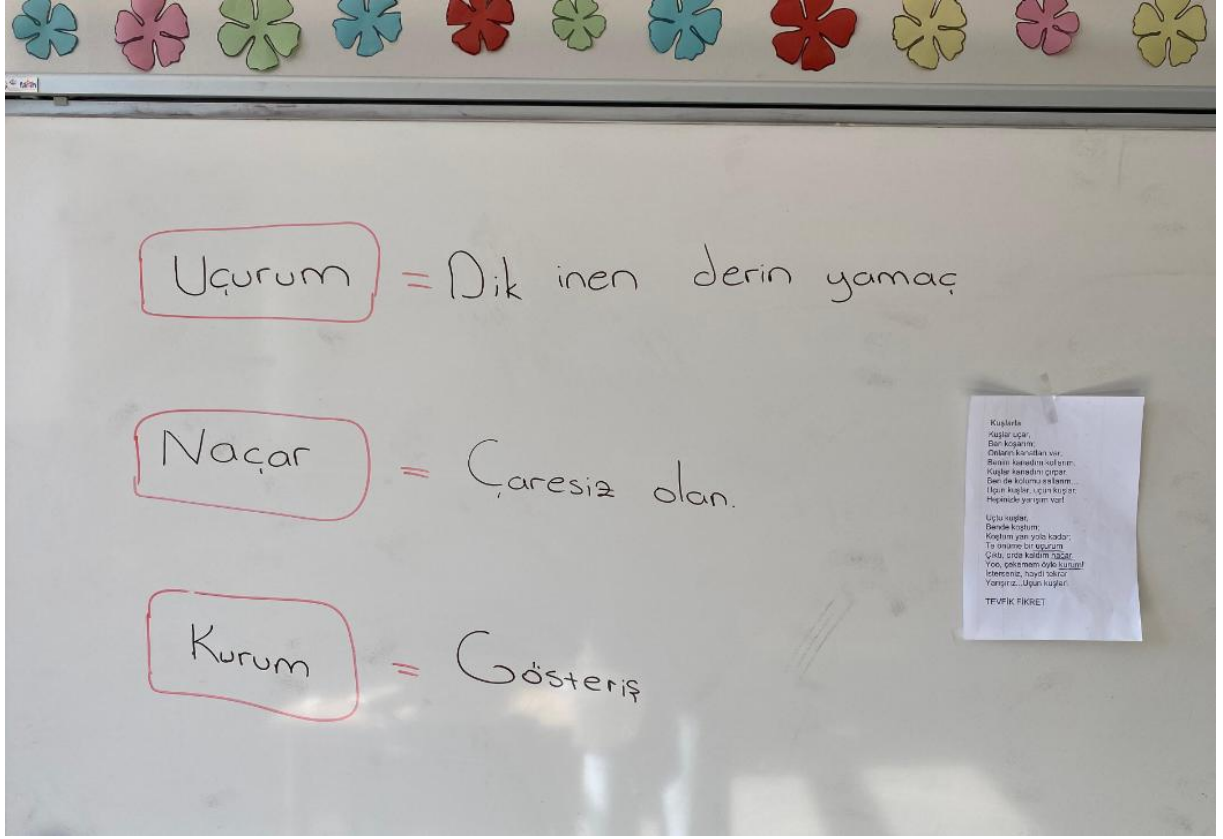 Uçurum = Dik inen derin yamaç
Naçar = Çaresiz olan.
Kurum = Gösteriş
Kuşlarla
Kuşlar uçar,
Ben koşarım;
Onların kanatları var,
Benim kanadım kollarım.
Kuşlar kanadını çırpar,
Ben de kolumu sallarım...
Uçun kuşlar, uçun kuşlar,
Hepinizle yarışım var!
Uçtu kuşlar,
Bende koştum;
Koştum yarı yola kadar;
Ta önüme bir uçurum
Çıktı, orda kaldım naçar.
Yoo, çekemem öyle kurum!
İsterseniz, haydi tekrar
Yarışırız...Uçun kuşlar!
TEVFİK FİKRET